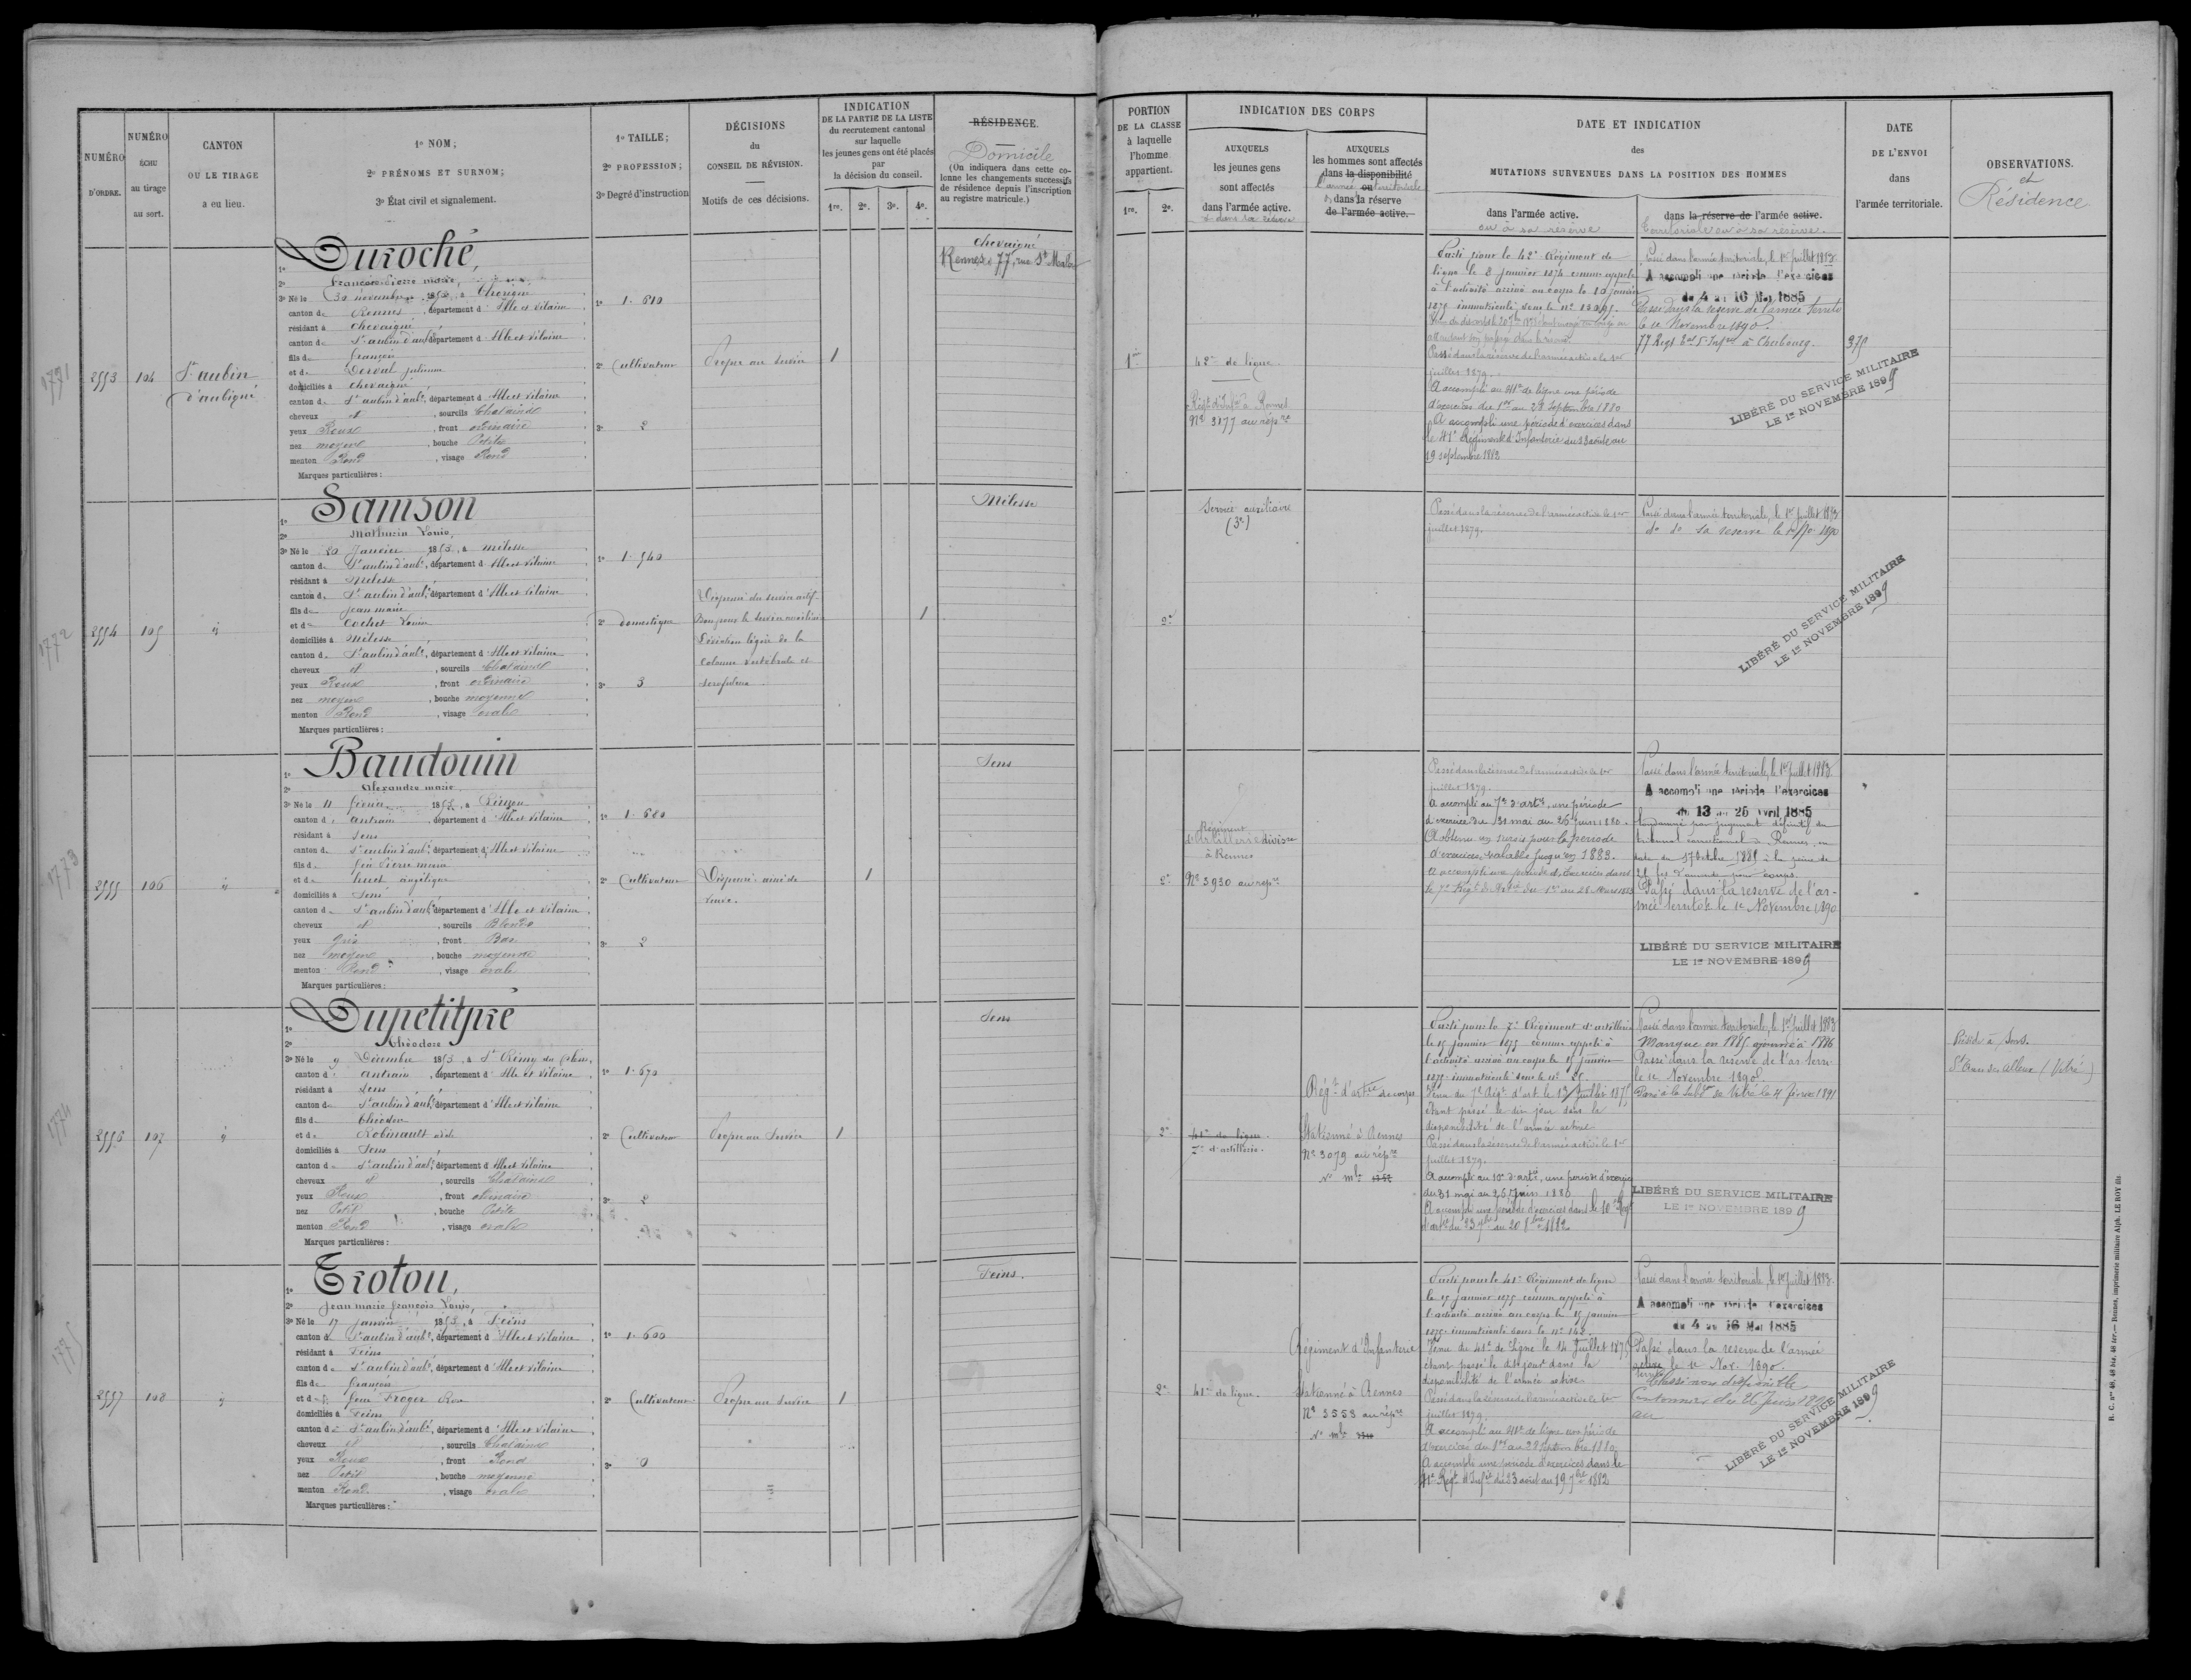 NUMÉRO D'ORDRE.
NUMÉRO ÉCHU au tirage au sort.
CANTON OU LE TIRAGE a eu lieu.
1º NOM;
2º PRÉNOMS ET SURNOM;
3º État civil et signalement.
1º TAILLE;
2º PROFESSION;
3º Degré d'instruction
DÉCISIONS
du
CONSEIL DE RÉVISION.
Motifs de ces décisions.
INDICATION
DE LA PARTIE DE LA LISTE
du recrutement cantonal
sur laquelle
les jeunes gens ont été placés
par
la décision du conseil.
1re. 2e. 3e. 4e.
RÉSIDENCE.
Domicile
(On indiquera dans cette co-
lonne les changements successifs
de résidence depuis l'inscription
au registre matricule.)
1771
2553
104
St aubin
d'aubigné
1º Duroché,
2º françois Pierre marie,
3º Né le 30 novembre 1853, à
canton de Rennes, département d'Ille et Vilaine
résidant à Chevaigné
canton de St aubin d'aubé, département d'Ille et Vilaine
fils de françois
et de Derval julienne
domiciliés à chevaigné
canton de St aubin d'aubé, département d'Ille et Vilaine
cheveux et, sourcils Chatains
yeux Roux, front ordinaire
nez moyen, bouche Petite
menton Rond, visage Rond
Marques particulières :
1º 1.610
2º Cultivateur
3º 2
Propre au service
1
Chevaigné
Rennes 77, rue St Malo
1772
2554
105
id
1º Samson
2º Mathurin Louis,
3º Né le 20 Janvier 1853, à Melesse
canton de St aubin d'aubé, département d'Ille et Vilaine
résidant à Melesse
canton de St aubin d'aubé, département d'Ille et Vilaine
fils de Jean marie
et de Cochet Louise
domiciliés à Melesse
canton de St aubin d'aubé, département d'Ille et Vilaine
cheveux et, sourcils Chatains
yeux Roux, front ordinaire
nez moyen, bouche moyenne
menton Rond, visage ovale
Marques particulières :
1º 1.540
2º domestique
3º 3
Dispensé du service actif
Bon pour le service auxiliaire
Déviation légère de la
colonne vertébrale et
scrofuleux
1
Melesse
1773
2555
106
id
1º Baudouin
2º Alexandre marie,
3º Né le 11 février 1853, à
canton d'antrain, département d'Ille et Vilaine
résidant à Sens
canton de St aubin d'aubé, département d'Ille et Vilaine
fils de feu Pierre marie
et de huet angélique
domiciliés à Sens
canton de St aubin d'aubé, département d'Ille et Vilaine
cheveux et, sourcils Blonds
yeux gris, front Bas
nez moyen, bouche moyenne
menton Rond, visage ovale
Marques particulières :
1º 1.680
2º Cultivateur
3º 2
Dispensé ainé de
veuve.
1
Sens
1774
2556
107
id
1º Dupetitpré
2º Théodore
3º Né le 9 Décembre 1853, à St Rémy du plain
canton d'antrain, département d'Ille et Vilaine
résidant à Sens
canton de St aubin d'aubé, département d'Ille et Vilaine
fils de Théodore
et de Robinault
domiciliés à Sens
canton de St aubin d'aubé, département d'Ille et Vilaine
cheveux et, sourcils Chatains
yeux Roux, front ordinaire
nez Petit, bouche Petite
menton Rond, visage ovale
Marques particulières :
1º 1.670
2º Cultivateur
3º 2
Propre au Service
1
Sens
1775
2557
108
id
1º Trotou,
2º Jean marie françois Louis,
3º Né le 17 janvier 1853, à Feins
canton de St aubin d'aubé, département d'Ille et Vilaine
résidant à Feins
canton de St aubin d'aubé, département d'Ille et Vilaine
fils de françois
et de feue Froger
domiciliés à Feins
canton de St aubin d'aubé, département d'Ille et Vilaine
cheveux et, sourcils Chatains
yeux Roux, front Rond
nez Petit, bouche moyenne
menton Rond, visage ovale
Marques particulières :
1º 1.600
2º Cultivateur
3º 0
Propre au Service
1
Feins.
PORTION
DE LA CLASSE
à laquelle
l'homme
appartient.
1re. 2e.
INDICATION DES CORPS
AUXQUELS
les jeunes gens
sont affectés
dans l'armée active.
& dans sa réserve
AUXQUELS
les hommes sont affectés
dans la disponibilité
l'armée ou territoriale
& dans la réserve
de l'armée active.
DATE ET INDICATION
des
MUTATIONS SURVENUES DANS LA POSITION DES HOMMES
dans l'armée active.
ou à sa réserve
dans la réserve de l'armée active.
Territoriale ou à sa réserve.
DATE
DE L'ENVOI
dans
l'armée territoriale.
OBSERVATIONS.
et
Résidence
1re
42e de ligne.
Régt d'Infie à Rennes
Nº 3177 au répre
Parti pour le 42e Régiment de
ligne le 8 janvier 1875 comme appelé
à l'activité arrivé au corps le 10 janvier
1875 immatriculé sous le nº
Passé dans la réserve de l'armée active le 1er
juillet 1879.
A accompli au 41e de ligne une période
d'exercices du 1er au 28 Septembre 1880
A accompli une période d'exercices dans
le 41e Régiment d'Infanterie du 23 août au
19 septembre 1882
Passé dans l'armée territoriale, le 1er juillet 1883
A accompli une période d'exercices
du 4 au 16 Mai 1885
Passé dans la réserve de l'armée territe
le 1e Novembre 1890.
à Cherbourg.
375
LIBÉRÉ DU SERVICE MILITAIRE
LE 1er NOVEMBRE 1899
2e
Service auxiliaire
(3e)
Passé dans la réserve de l'armée active le 1er
juillet 1879.
Passé dans l'armée territoriale, le 1er juillet 1883
do do sa réserve le 1890
LIBÉRÉ DU SERVICE MILITAIRE
LE 1er NOVEMBRE 1899
2e
Régiment
d'Artillerie division
à Rennes
Nº 3930 au répre
Passé dans la réserve de l'armée active le 1er
juillet 1879.
A accompli au 7e d'artie, une période
d'exercice du 31 mai au 26 juin 1880.
A obtenu un sursis pour la période
d'exercices valable jusqu'en 1883.
A accompli une période d'Exercices dans
le 7e Régt d'Artie du 1er au 28 Mars 1883
Passé dans l'armée territoriale, le 1er Juillet 1883
A accompli une période d'exercices
du 13 au 25 Avril 1885
Condamné par jugement définitif du
tribunal correctionnel de Rennes, en
date du 17 Octobre 1889 à la peine de
d'amende pour coups.
Passé dans la réserve de l'ar-
mée territole le 1e Novembre 1890
LIBÉRÉ DU SERVICE MILITAIRE
LE 1er NOVEMBRE 1899
2e
41e de ligne.
7e d'artillerie.
Régt d'artie de corps
Stationné à Rennes
Nº 3079 au répre
Nº mle
Parti pour le 7e Régiment d'artillerie
le 15 janvier 1875 comme appelé à
l'activité arrivé au corps le 15 janvier
1875 immatriculé sous le nº
Venu du 7e Régt d'art. le 13 Juillet 1875
étant passé le dit jour dans la
disponibilité de l'armée active
Passé dans la réserve de l'armée active le 1er
juillet 1879.
A accompli au 10e d'artie, une période d'exercice
du 31 mai au 26 Juin 1880
A accompli une période d'exercices dans le 10e Régt
d'artie du 23 7bre au 20 8bre 1882
Passé dans l'armée territoriale, le 1er Juillet 1883
Manque en 1885 ajourné à 1886
Passé dans la réserve de l'ar. terri.
le 1e Novembre 1890.
Passé à la Subdon de Vitré le 4 février 1891
LIBÉRÉ DU SERVICE MILITAIRE
LE 1er NOVEMBRE 1899
Réside à Sens.
(Vitré)
2e
41e de ligne.
Régiment d'Infanterie
Stationné à Rennes
Nº 3558 au répre
Nº mle
Parti pour le 41e Régiment de ligne
le 15 janvier 1875 comme appelé à
l'activité arrivé au corps le 15 janvier
1875 immatriculé sous le nº
Venu du 41e de Ligne le 14 Juillet 1875
étant passé le dit jour dans la
disponibilité de l'armée active.
Passé dans la réserve de l'armée active le 1er
juillet 1879.
A accompli au 41e de ligne une période
d'exercices du 1er au 28 Septembre 1880
A accompli une période d'exercices dans le
41e Régt d'Infie du 23 août au 19 7bre 1882
Passé dans l'armée territoriale, le 1er Juillet 1883
A accompli une période d'exercices
du 4 au 16 Mai 1885
Passé dans la réserve de l'armée
active le 1e Nov. 1890.
Classé non disponible
Cantonnier du
au
LIBÉRÉ DU SERVICE MILITAIRE
LE 1er NOVEMBRE 1899
R. C. nos 48, 48 bis, 48 ter. — Rennes, imprimerie militaire Alph. LE ROY fils